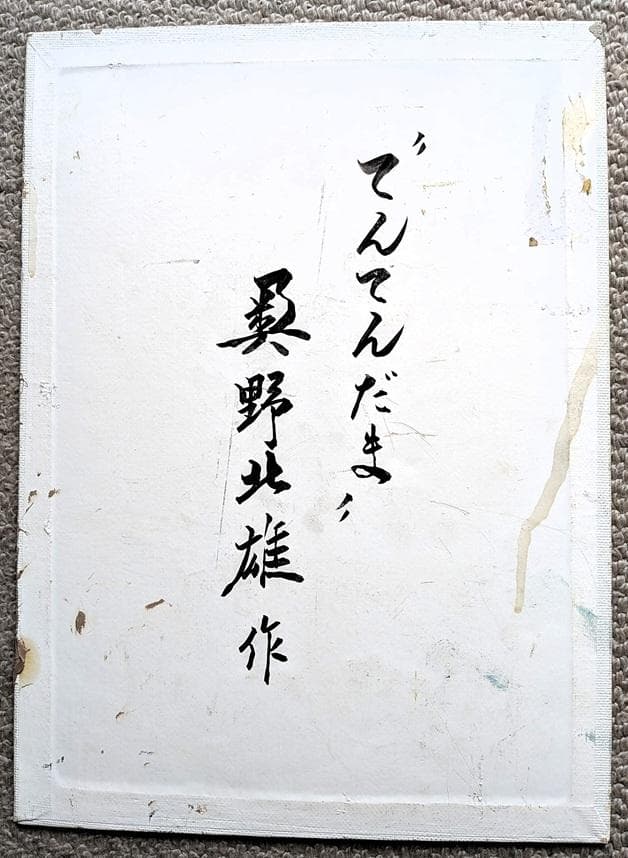 〃てんてんだま〃
奥野北雄作